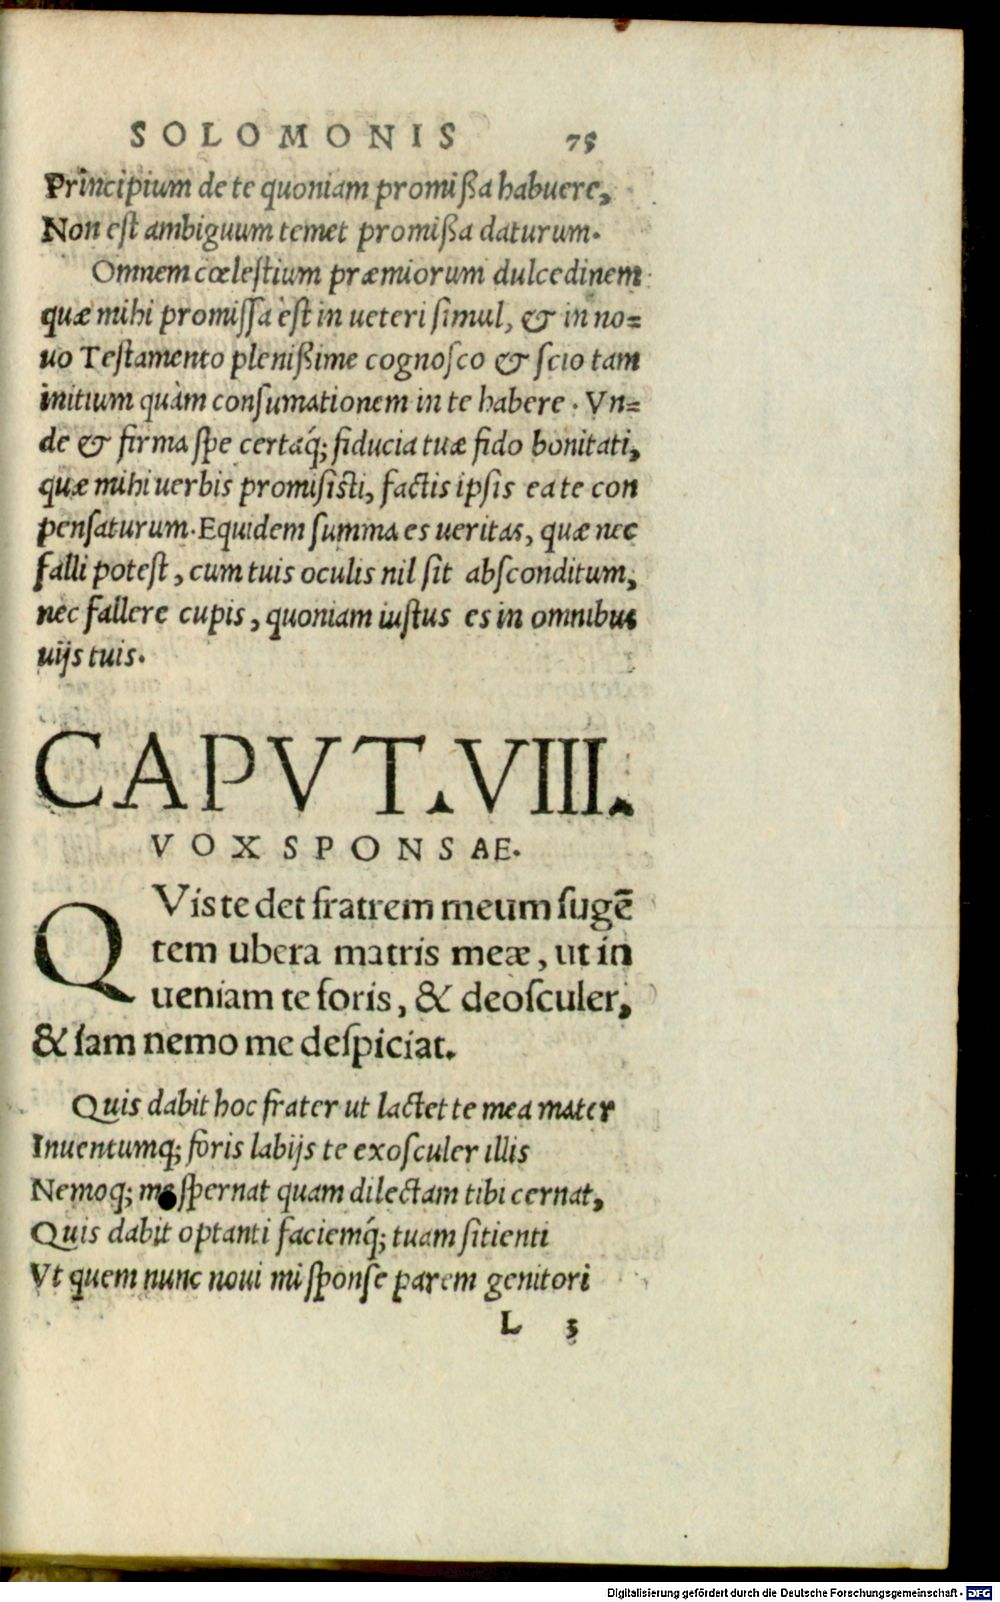 SOLOMONIS 75
Principium de te quoniam promißa habuere,
Non est ambiguum temet promißa daturum.
Omnem cœlestium præmiorum dulcedinem
quæ mihi promissa est in ueteri simul, & in no=
uo Testamento plenißime cognosco & scio tam
initium quàm consumationem in te habere. Vn=
de & firma spe certaq́; fiducia tuæ fido bonitati,
quæ mihi uerbis promisisti, factis ipsis ea te con
pensaturum. Equidem summa es ueritas, quæ nec
falli potest, cum tuis oculis nil sit absconditum,
nec fallere cupis, quoniam iustus es in omnibus
uijs tuis.
CAPVT.VIII.
VOX SPONSAE.
QVis te det fratrem meum sugē
tem ubera matris meæ, ut in
ueniam te foris, & deosculer,
& iam nemo me despiciat.
Quis dabit hoc frater ut lactet te mea mater
Inuentumq; foris labijs te exosculer illis
Nemoq; me spernat quam dilectam tibi cernat,
Quis dabit optanti faciemq́; tuam sitienti
Vt quem nunc noui mi sponse parem genitori
L 3
Digitalisierung gefördert durch die Deutsche Forschungsgemeinschaft - DFG